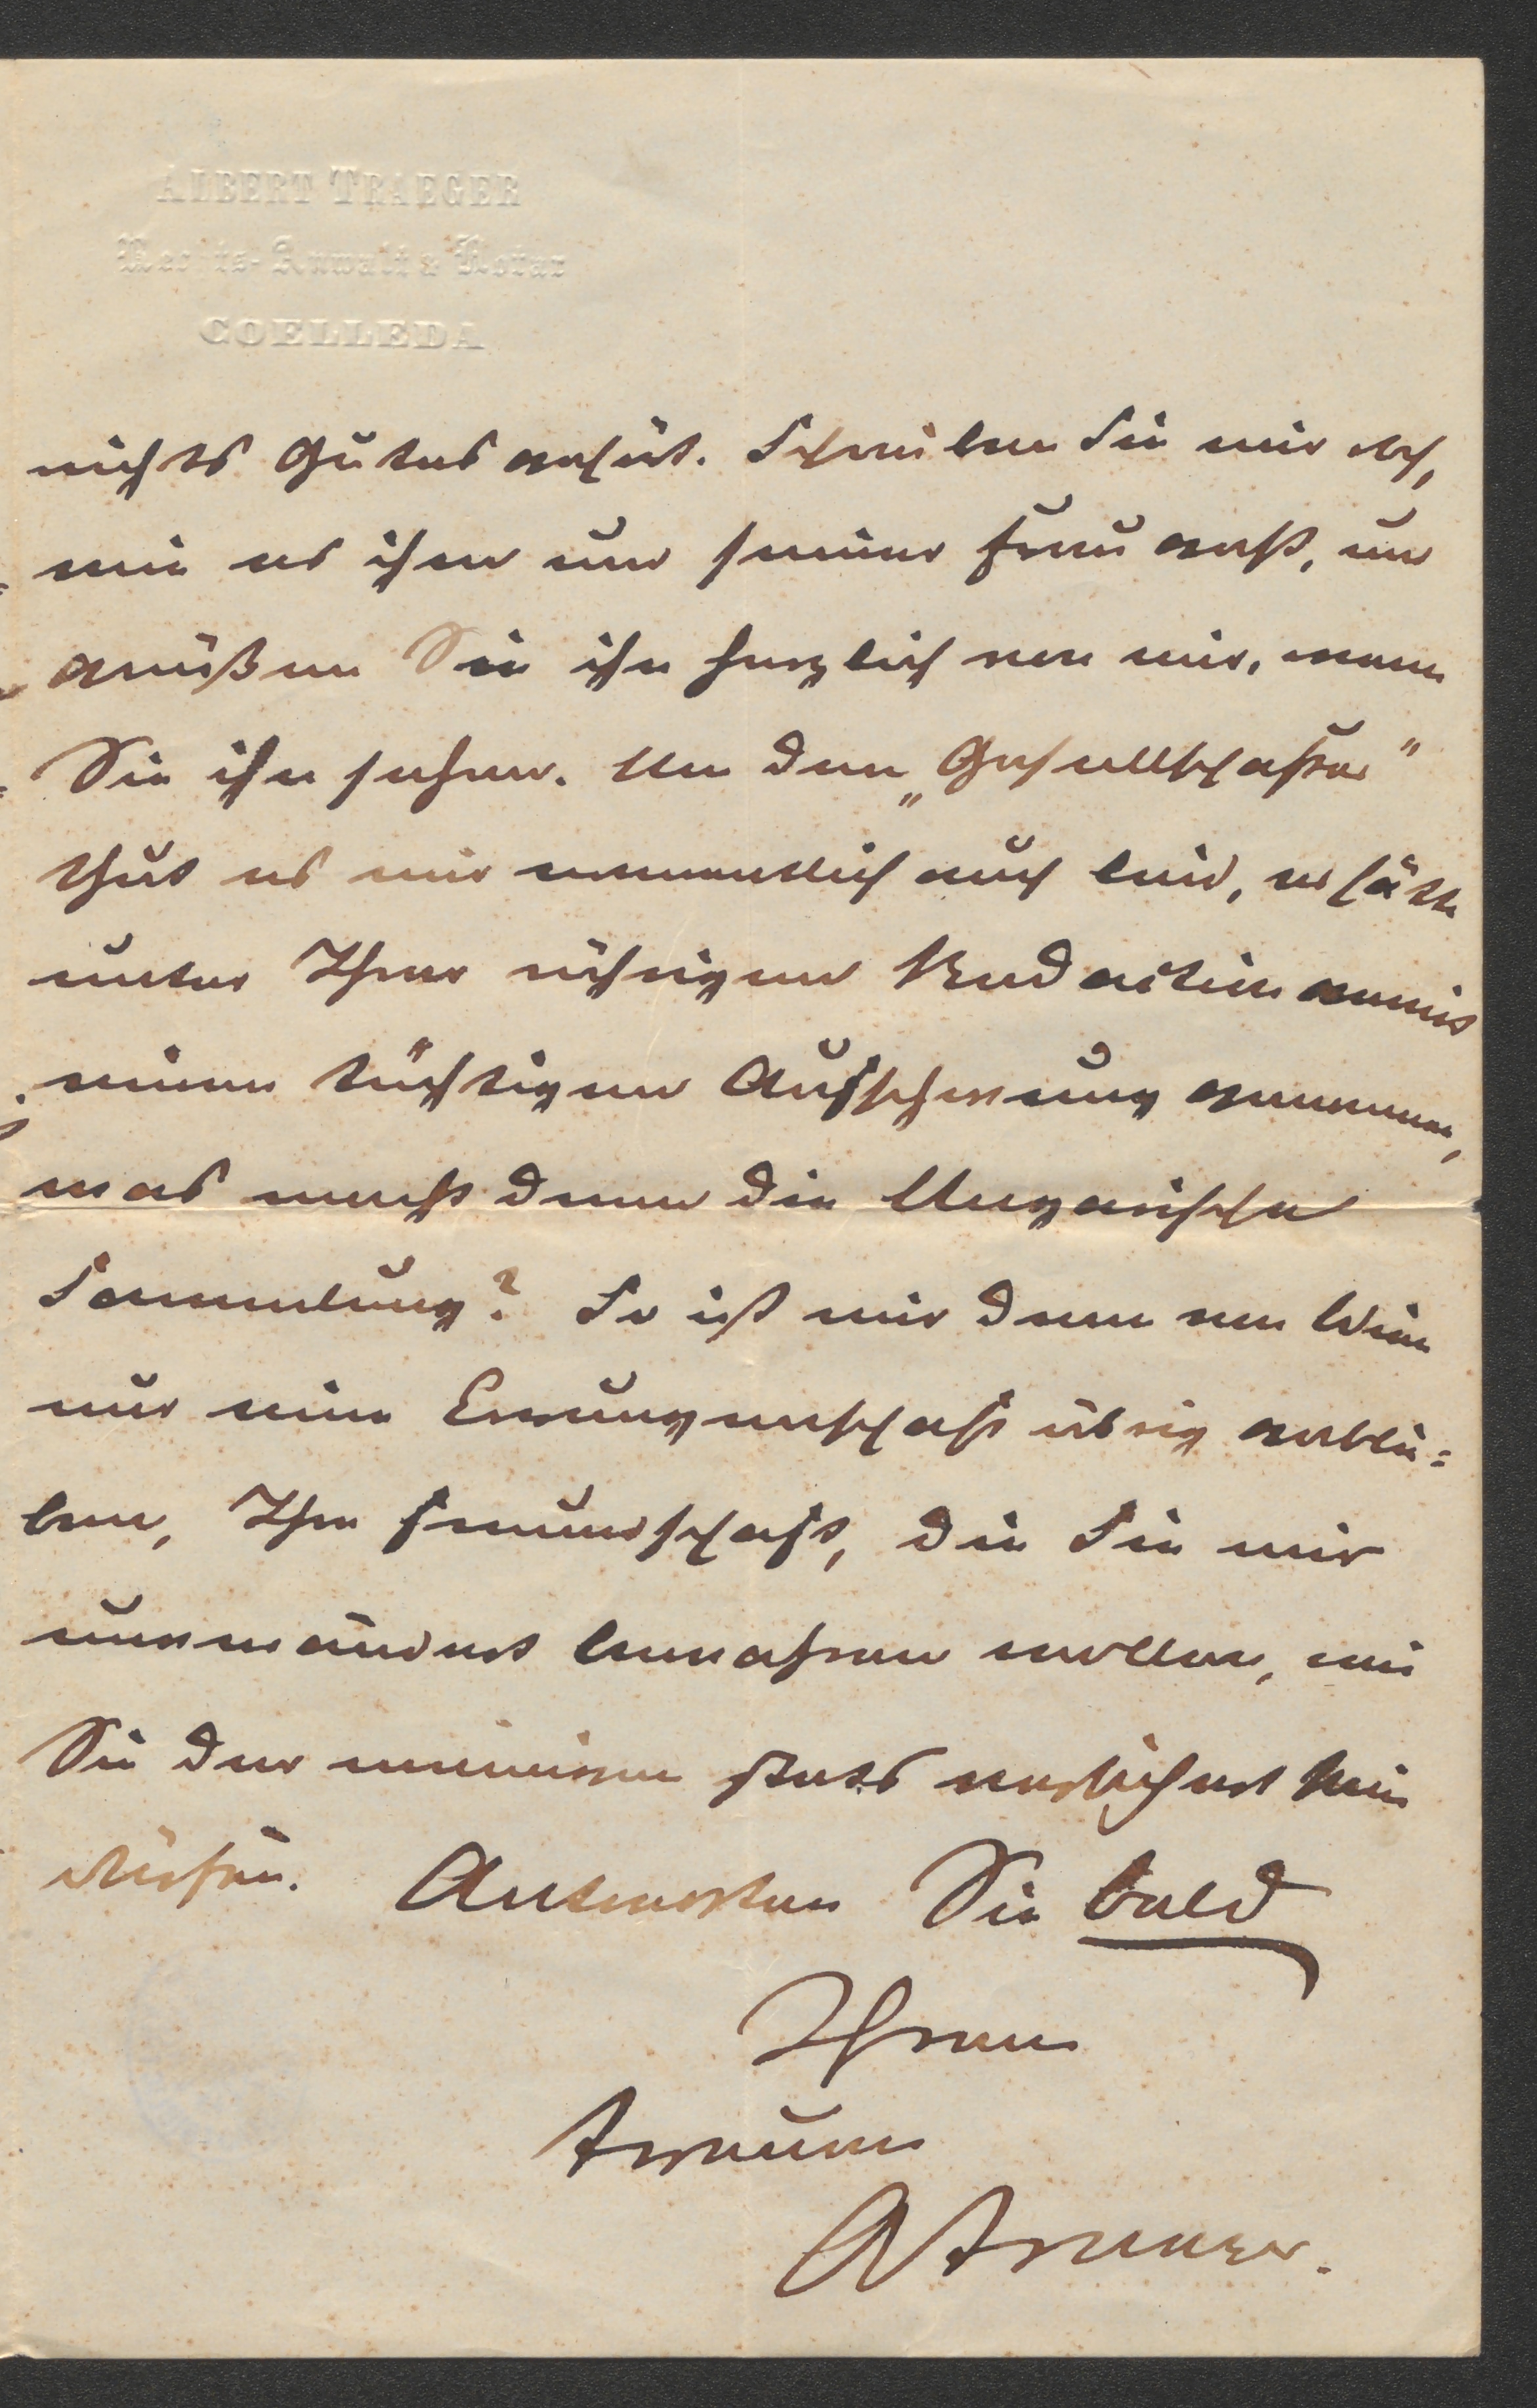 ALBERT TRAEGER
Rechts-Anwalt & Notar
COELLEDA
nichts Gutes gehört. Schreiben Sie mir doch,
wie es ihm und seiner Frau geht, und
grüßen Sie ihn herzlich von mir, wenn
Sie ihn sehen. Um den „Gesellschafter"
thut es mir namentlich auch leid, er hätte
unter Ihrer rührigen Redaction gewiß
einen tüchtigen Aufschwung genommen,
was macht denn die Ungarische
Sammlung? So ist mir denn von Wien
nur eine Errungenschaft übrig geblie=
ben, Ihre Freundschaft, die Sie mir
unverändert bewahren wollen, wie
Sie der meinigen stets versichert sein
dürfen. Antworten Sie bald
Ihrem
treuen
ATraeger.